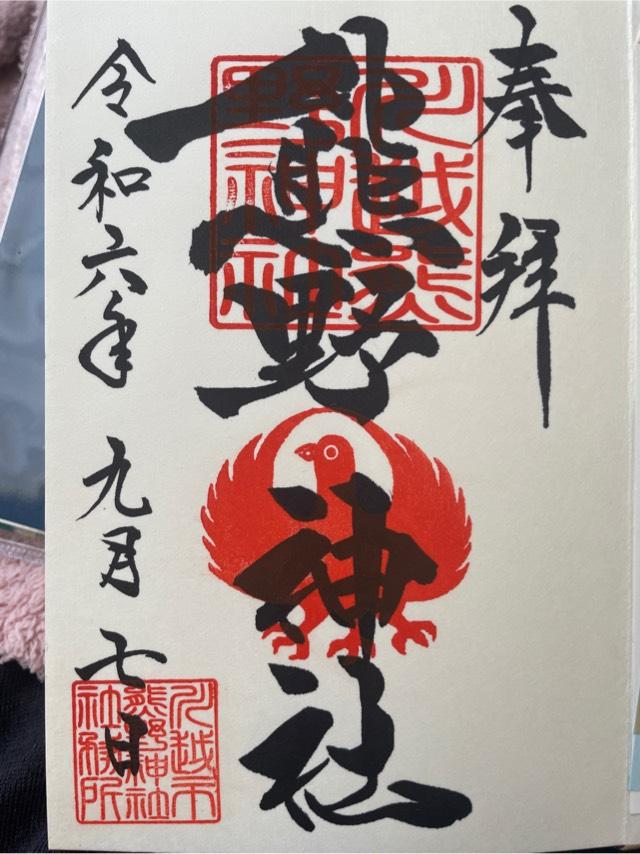 奉拝
川越熊
野神社
熊野神社
令和六年 九月 七日
川越市
熊野神社
社務所